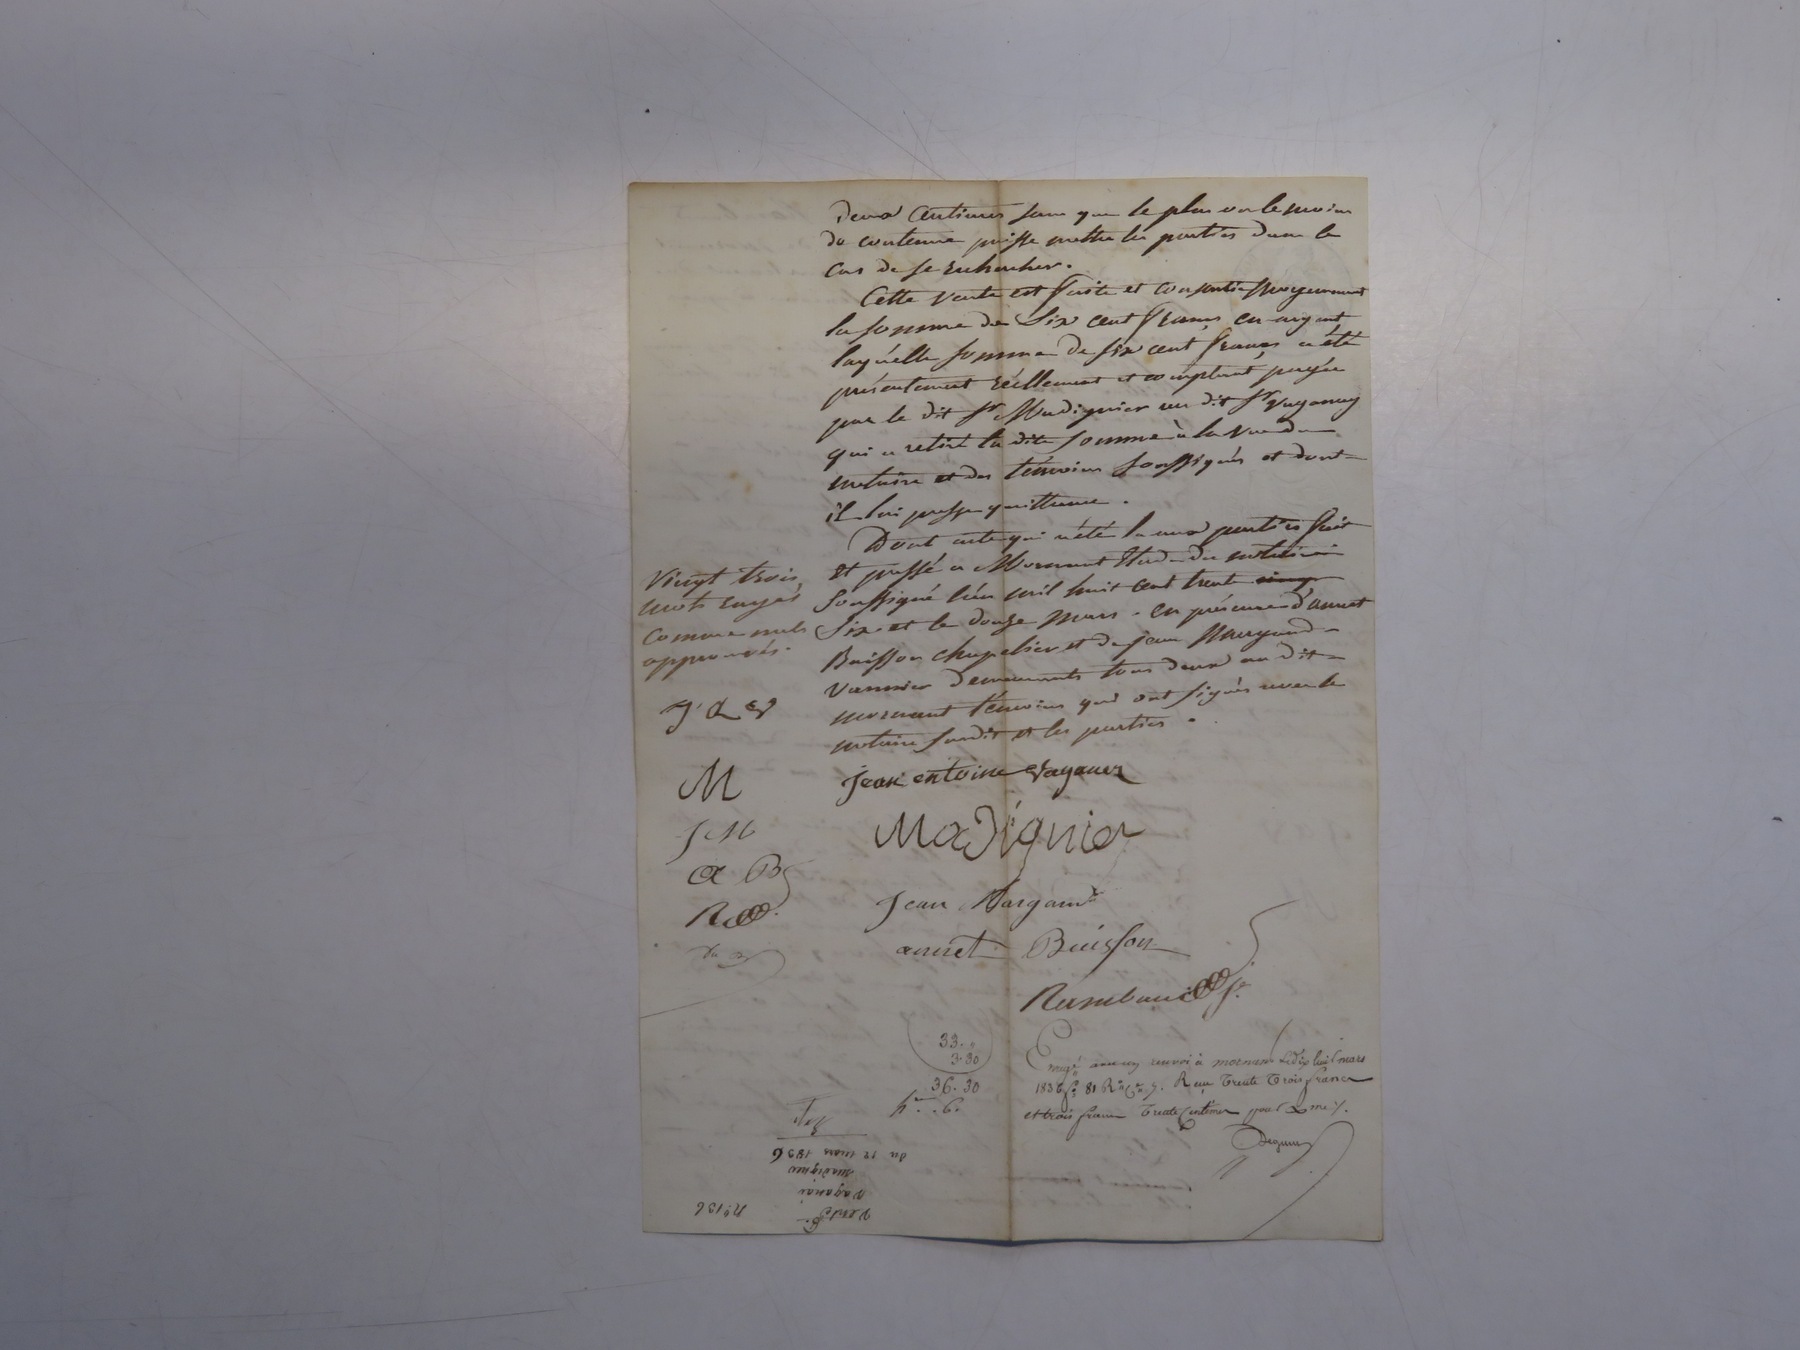 deux centimes sans que le plus ou le moins
de contenue puisse mettre les parties dans le
cas de se rechercher.
Cette vente est faite et consentie moyennant
la somme de Six cent francs en argent
laquelle somme de six cent francs a été
présentement réellement et comptant payée
par le dit Sr Madignier au dit Sr Vaganay
qui a retiré la dite somme à la vue du
notaire et des témoins soussignés et dont
il lui passe quittance.
Dont acte qui a été lu aux parties fait
et passé a Mornant Etude du notaire
Soussigné l'an mil huit cent trente cinq
Six et le douze Mars. en présence d'annet
Buisson chapelier et de jean Margand
vannier demeurants tous deux au dit
mornant témoins qui ont signés avec le
notaire susdit et les parties.
Vingt trois
mots rayés
comme nuls
approuvés.
J. A V
M
J M
a B
R
jean entoine Vaganez
Madignier
Jean Margand
annet Buisson
Rambaud Je
33. "
3.30
36.30
hre .6.
Enregé sans renvoi à mornant Le dix huit mars
1836 fo 81 Ro Ce 5. Reçu Trente Trois francs
et trois francs Trente Centimes pour
No 136
Vente
Vaganai
Madignier
du 12 mars 1836